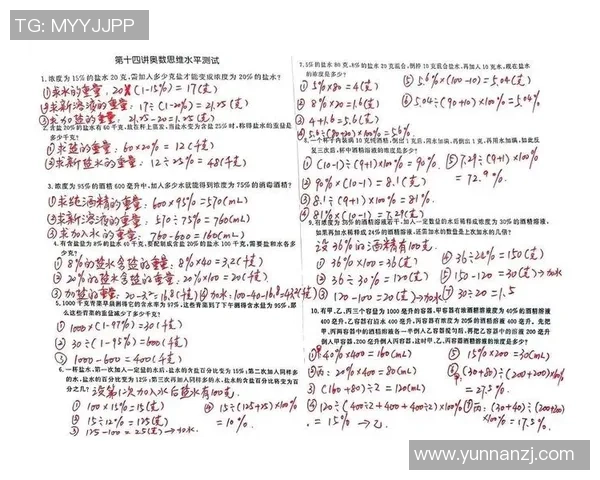 TG: MYYJJPP
第十四讲奥数思维水平测试
1.浓度为15%的盐水20克,需加入多少克盐才能变成浓度为20%的盐水?
①求水的重量:20×(1-15%)=17(克)
②求新溶液的重量:17÷(1-20%)=21.25(克)
③求加盐的重量:21.25-20=1.25(克)
2.含盐20%的盐水有60千克,放在秤上蒸发,当盐水变为含盐25%时,称得盐水的重量是多少千克?
①求盐的重量:60×20%=12(千克)
②求新盐水的重量:12÷25%=48(千克)
3.浓度为95%的酒精600毫升中,加入多少水就能得到浓度为75%的消毒酒精?
①求纯酒精的重量:600×95%=570(mL)
②求新溶液的重量:570÷75%=760(mL)
③求加入水的重量:760-600=160(mL)
4.有含盐量为8%的盐水40千克,要配制成含盐20%的盐水100千克,需要盐和水各多少克?
①8%的盐水含盐的重量:8%×40=3.2(千克)
②20%的盐水含盐的重量:20%×100=20(千克)
③加盐的重量:20-3.2=16.8(千克)④加水:100-40-16.8=43.2(千克)
5.1000千克青菜早晨测得它的含水率为97%,这些青菜到了下午测得含水量为95%,那么这些青菜的重量减少了多少千克?
①1000×(1-97%)=30(千克)
②30÷(1-95%)=600(千克)
③1000-600=400(千克)
6.一杯盐水,第一次加入一定量的水后,盐水的含盐百分比变为15%;第二次加入同样多的水,盐水的含盐百分比变为12%;第三次再加入同样多的水,盐水的含盐百分比将变为百分之几?
设第1次加入水后盐水有100克.
①100×15%=15(克)
②15÷12%=125(克)
③125-100=25(克)→加水
④15÷(125+25)×100%
=10%.
7.5%的盐水80克,8%的盐水20克混合,倒掉10克混合盐水,再加入10克水,现在盐水的浓度是多少?
①5%×80=4(克)
②8%×20=1.6(克)
③4+1.6=5.6(克)
④5.6÷(80+20)×100%=5.6%
⑤5.6%×(100-10)=5.04(克)
⑥5.04÷(90+10)×100%=5.04%
8.一个杯子内装满10克纯酒精,倒出1克后,用水加满,再倒出1克,再用水加满,如此反复三次后,杯中酒精溶液的浓度是多少?
①(10-1)÷(9+1)×100%=90%
②90%×(10-1)=8.1(克)
③8.1÷(9+1)×100%=81%
④81%×(10-1)=7.29(克)
⑤7.29÷(9+1)×100%
=72.9%
9.有浓度为36%的酒精溶液若干,加入一定数量的水后稀释成浓度为30%的酒精溶液,如果再加水稀释成24%的酒精溶液,还需加水的数量是上次加水的几倍?
设36%的酒精有100克.
①36%×100=36(克)
②36÷30%=120(克)
③120-100=20(克)→加水
④36÷24%=150(克)
⑤150-120=30(克)→加水
⑦30÷20=1.5
10.有甲、乙、丙三个容量为1000毫升的容器,甲容器有浓度为40%的糖水400毫升;乙容器有清水400毫升,丙容器有浓度为20%的糖水400毫升,先把甲、丙两容器中的糖水各一半倒入乙容器搅匀后,再把乙容器中的溶液200毫升倒入甲容器,200毫升倒入丙容器,这时甲、乙、丙容器糖水的浓度是多少?
①甲:40%×400=160(mL)
②丙:20%×400=80(mL)
③(160+80)÷2=120(mL)
④120÷(400÷2+400+400÷2)×100%
=15%→乙
⑤15%×200=30(mL)
⑥(30+80)÷(200+200)×100%
=27.5%
⑦丙:(30+40)÷(200+200)
×100%=17.5%
www.yunnanzj.com